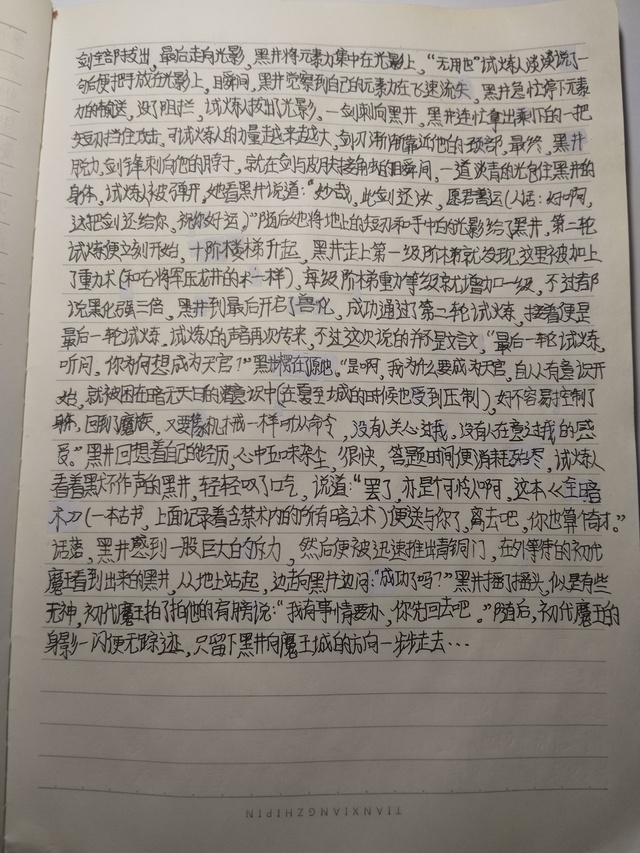 剑全部拔出，最后走向光影，黑井将元素力集中在光影上，“无用也”试炼人淡淡说了一
句后便把手放在光影上，瞬间，黑井觉察到自己的元素力在飞速流失，黑井急忙停下元素
力的输送，没了阻拦，试炼人拔出了光影，一剑刺向黑井，黑井连忙拿出剩下的一把
短刃挡住攻击，可试炼人的力量越来越大，剑刃渐渐靠近他的颈部，最终，黑井
脱力，剑锋刺向他的脖子，就在剑与皮肤接触的瞬间，一道淡青的光包住黑井的
身体，试炼人被弹开，她看黑井说道：“妙哉，此剑还汝，愿君善运（人话：好啊，
这把剑还给你，祝你好运。）”随后她将地上的短刃和手中的光影给了黑井，第二轮
试炼便立刻开始，十阶楼梯升起，黑井走上第一级阶梯就发现这里被加上
了重力术（和右将军压龙井的术一样），每级阶梯重力等级就增加一级，不过都
说黑化强三倍，黑井到最后开启了兽化，成功通过了第二轮试炼，接着便是
最后一轮试炼，试炼人的声音再次传来，不过这次说的并不是文言文，“最后一轮试炼，
听问，你为何想成为天官？”黑井愣在原地。“是啊，我为什么要成为天官，自从有意识开
始，就被困在暗无天日的潜意识中（在夏至城的时候也受到压制），好不容易控制了
身体，回到了魔族，又要像机械一样听从命令，没有人关心过我，没有人在意过我的感
受。”黑井回想着自己的经历，心中五味杂尘，很快，答题时间便消耗殆尽，试炼人
看着默不作声的黑井，轻轻叹了口气，说道：“罢了，亦是可怜人啊，这本《全暗
术刀》（一本古书，上面记录着含禁术内的所有暗之术）便送与你了，离去吧，你也算奇才。”
话落，黑井感到一股巨大的斥力，然后便被迅速推出青铜门，在外等待的初代
魔王看到出来的黑井，从地上站起，边走向黑井边问：“成功了吗？”黑井摇了摇头，似是有些
无神，初代魔王拍了拍他的肩膀说：“我有事情要办，你先回去吧。”随后，初代魔王的
身影一闪便无踪迹，只留下黑井向魔王城的方向一步步走去…
TIANXIANGZHIPIN